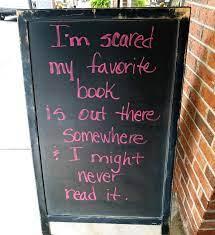 I'm scared
my favorite
book
is out there
somewhere
& I might
never
read it.